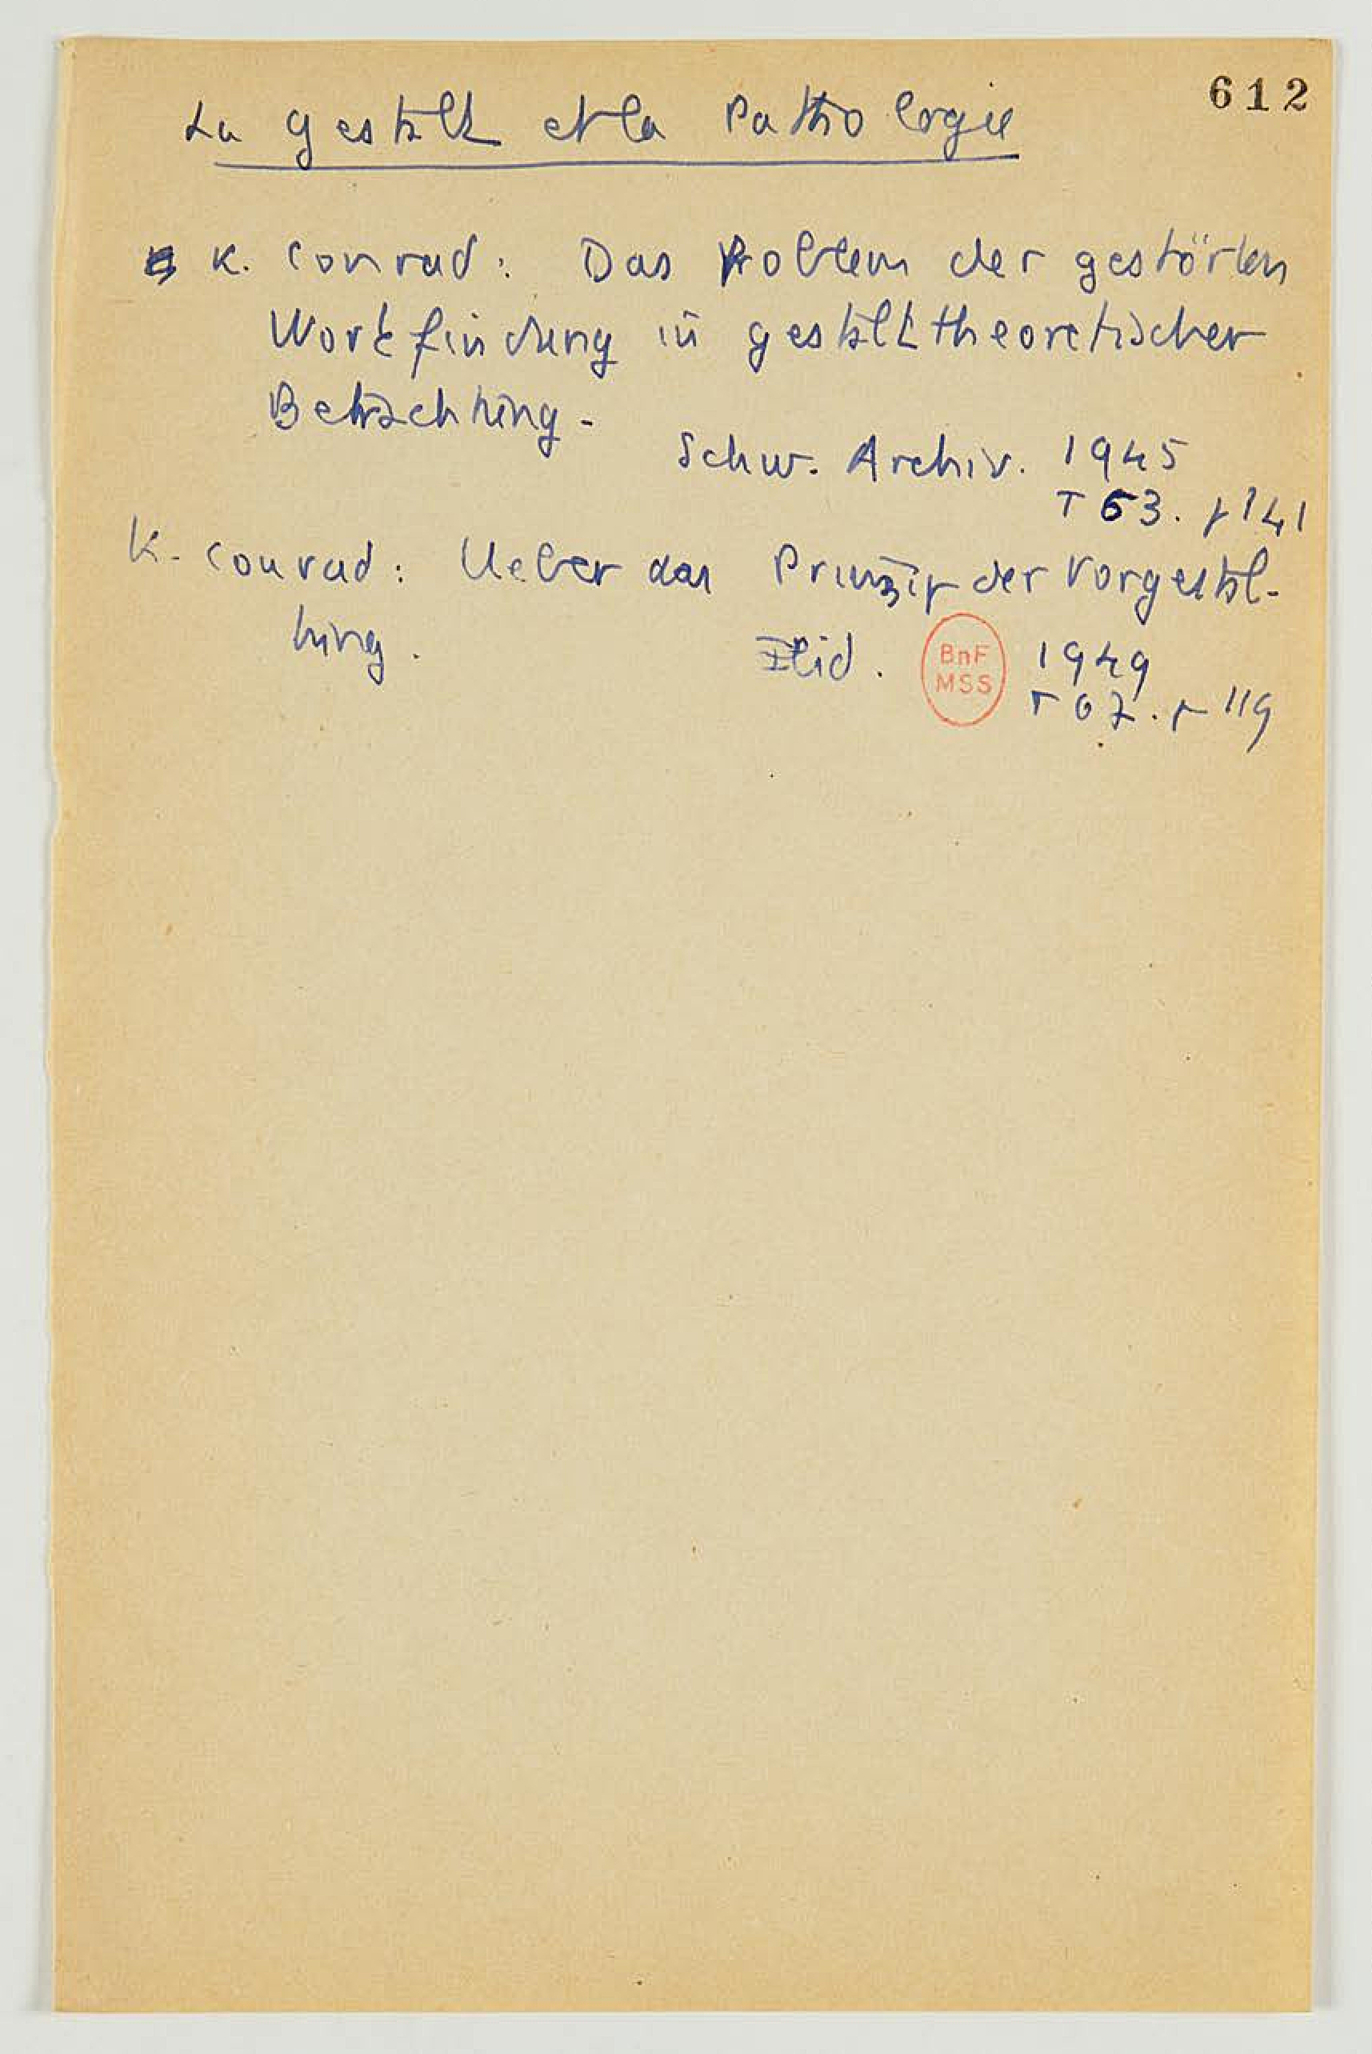 612
La Gestalt et la Pathologie
K. Conrad : Das Problem der gestörten
Wortfindung in gestalttheoretischer
Betrachtung -
Schw. Archiv. 1945
T 63. p 141
K. Conrad : Ueber das Prinzip der Vorgestal-
tung.
Ibid. 1949
BnF
MSS
T 67. p 119